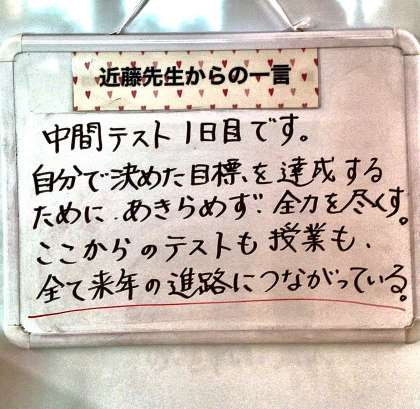 近藤先生からの一言
中間テスト1日目です。
自分で決めた目標、を達成する
ために、あきらめず、全力を尽くす。
ここからのテストも授業も、
全て来年の進路につながっている。